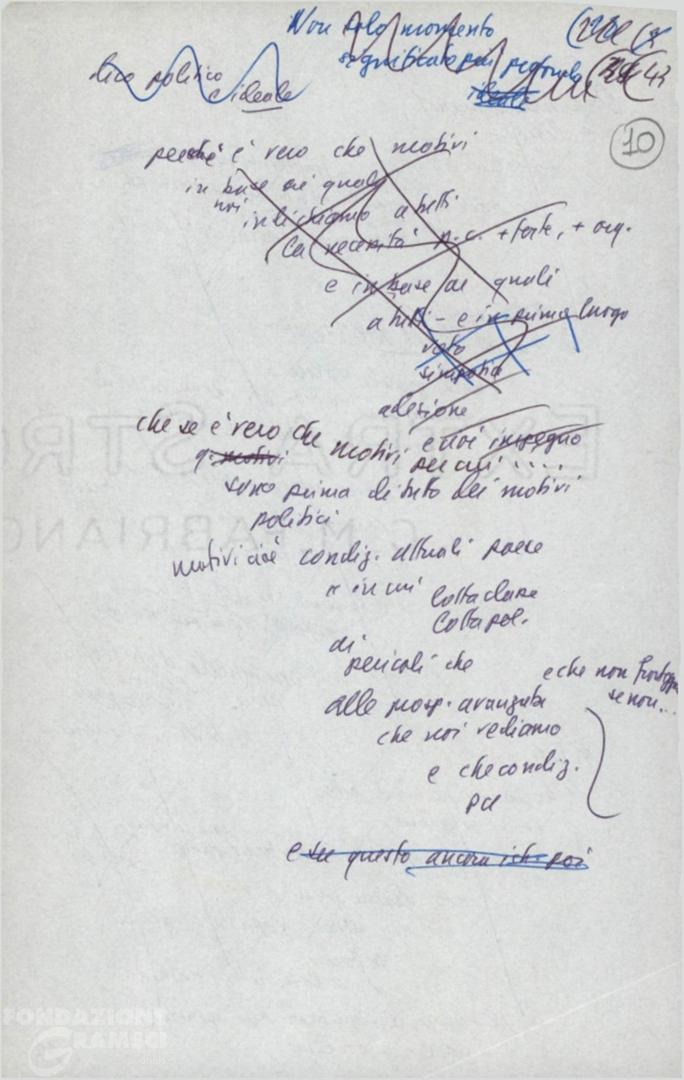 Non solo momento
significato più profondo
ideale
dico politico
e ideale
10
perché è vero che motivi
in base ai quali
noi
indichiamo a tutti
la necessità p.c. + forte, + org.
e in base ai quali
a tutti - e in primo luogo
voto
simpatia
adesione
che se è vero che motivi
q. motivi per cui ....
sono prima di tutto dei motivi
politici
motivi cioè condiz. attuali paese
in cui lotta classe
lotta pol.
di
pericoli che
e che non
se non...
alle prosp. avanzate
che noi vediamo
e che condiz.
pci
e su questo ancora poi
EXTRA STRO
C.M. FABRIANO
FONDAZIONE
GRAMSCI